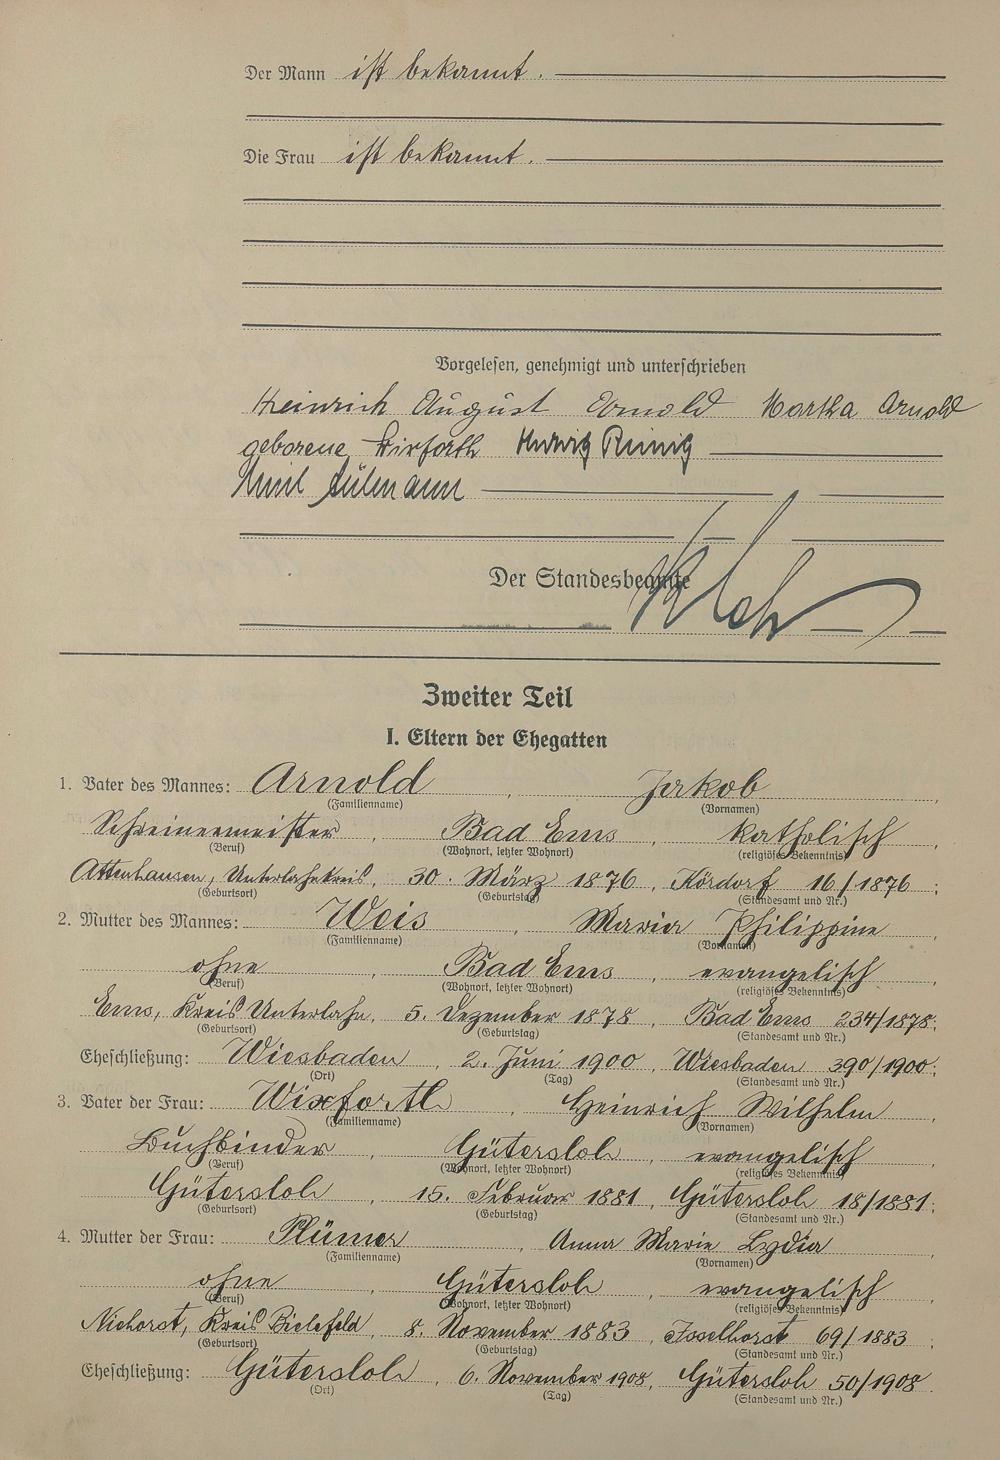 Der Mann ist bekannt.
Die Frau ist bekannt.
Vorgelesen, genehmigt und unterschrieben
Heinrich August Arnold Martha Arnold
geborene Wixforth
Emil
Der Standesbeamte
Zweiter Teil
I. Eltern der Ehegatten
1. Vater des Mannes: Arnold, Jakob,
(Familienname) (Vornamen)
Schreinermeister, Bad Ems, katholisch
(Beruf) (Wohnort, letzter Wohnort) (religiöses Bekenntnis)
Attenhausen, Unterlahnkreis, 30. März 1876, Kördorf 16/1876;
(Geburtsort) (Geburtstag) (Standesamt und Nr.)
2. Mutter des Mannes: Weis, Maria Philippine,
(Familienname) (Vornamen)
ohne, Bad Ems, evangelisch
(Beruf) (Wohnort, letzter Wohnort) (religiöses Bekenntnis)
Ems, Kreis Unterlahn, 5. Dezember 1878, Bad Ems 234/1878;
(Geburtsort) (Geburtstag) (Standesamt und Nr.)
Eheschließung: Wiesbaden, 2. Juni 1900, Wiesbaden 390/1900;
(Ort) (Tag) (Standesamt und Nr.)
3. Vater der Frau: Wixforth, Heinrich Wilhelm,
(Familienname) (Vornamen)
Buchbinder, Gütersloh, evangelisch,
(Beruf) (Wohnort, letzter Wohnort) (religiöses Bekenntnis)
Gütersloh, 15. Februar 1881, Gütersloh 18/1881;
(Geburtsort) (Geburtstag) (Standesamt und Nr.)
4. Mutter der Frau: Plümer, Anna Marie Lydia,
(Familienname) (Vornamen)
ohne, Gütersloh, evangelisch,
(Beruf) (Wohnort, letzter Wohnort) (religiöses Bekenntnis)
Niehorst, Kreis Bielefeld, 8. November 1883, Isselhorst 69/1883;
(Geburtsort) (Geburtstag) (Standesamt und Nr.)
Eheschließung: Gütersloh, 6. November 1908, Gütersloh 50/1908.
(Ort) (Tag) (Standesamt und Nr.)